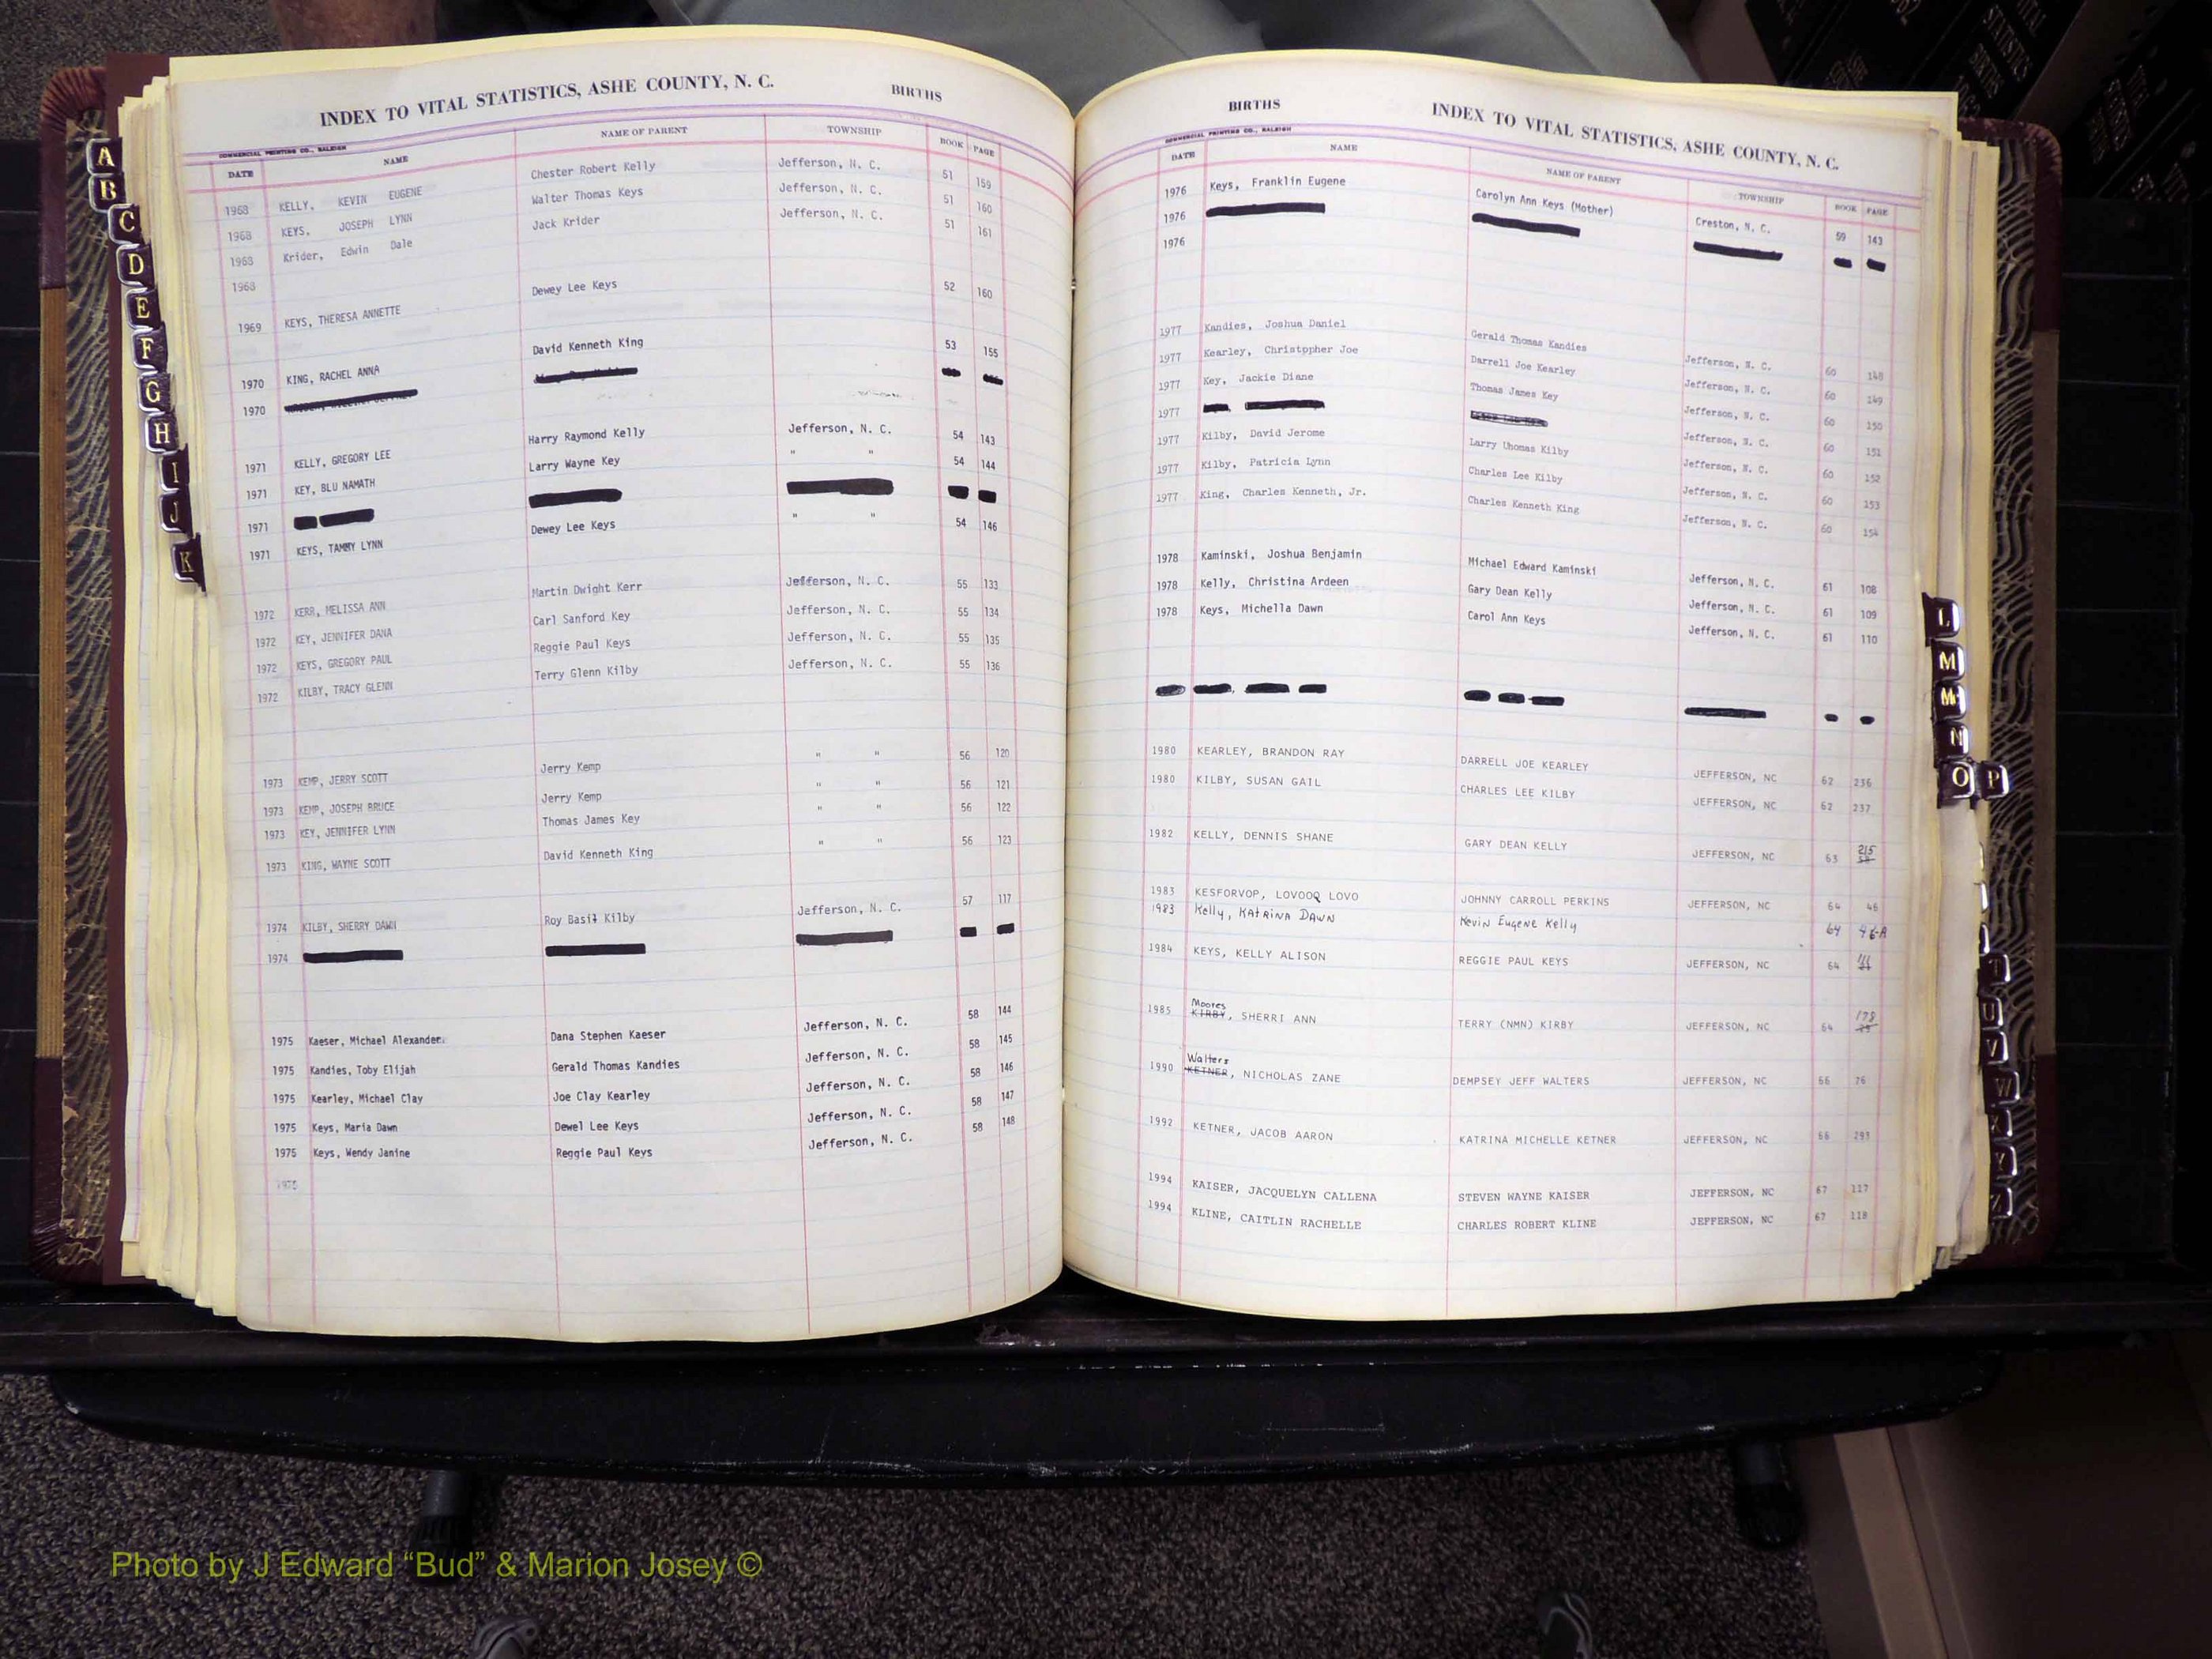 INDEX TO VITAL STATISTICS, ASHE COUNTY, N. C. BIRTHS
COMMERCIAL PRINTING CO., RALEIGH
DATE NAME NAME OF PARENT TOWNSHIP BOOK PAGE
1968 KELLY, KEVIN EUGENE Chester Robert Kelly Jefferson, N. C. 51 159
1968 KEYS, JOSEPH LYNN Walter Thomas Keys Jefferson, N. C. 51 160
1968 Krider, Edwin Dale Jack Krider Jefferson, N. C. 51 161
1968
1969 KEYS, THERESA ANNETTE Dewey Lee Keys 52 160
1970 KING, RACHEL ANNA David Kenneth King 53 155
1970
1971 KELLY, GREGORY LEE Harry Raymond Kelly Jefferson, N. C. 54 143
1971 KEY, BLU NAMATH Larry Wayne Key " " 54 144
1971
1971 KEYS, TAMMY LYNN Dewey Lee Keys " " 54 146
1972 KERR, MELISSA ANN Martin Dwight Kerr Jefferson, N. C. 55 133
1972 KEY, JENNIFER DANA Carl Sanford Key Jefferson, N. C. 55 134
1972 KEYS, GREGORY PAUL Reggie Paul Keys Jefferson, N. C. 55 135
1972 KILBY, TRACY GLENN Terry Glenn Kilby Jefferson, N. C. 55 136
1973 KEMP, JERRY SCOTT Jerry Kemp " " 56 120
1973 KEMP, JOSEPH BRUCE Jerry Kemp " " 56 121
1973 KEY, JENNIFER LYNN Thomas James Key " " 56 122
1973 KING, WAYNE SCOTT David Kenneth King " " 56 123
1974 KILBY, SHERRY DAWN Roy Basil Kilby Jefferson, N. C. 57 117
1974
1975 Kaeser, Michael Alexander. Dana Stephen Kaeser Jefferson, N. C. 58 144
1975 Kandies, Toby Elijah Gerald Thomas Kandies Jefferson, N. C. 58 145
1975 Kearley, Michael Clay Joe Clay Kearley Jefferson, N. C. 58 146
1975 Keys, Maria Dawn Dewel Lee Keys Jefferson, N. C. 58 147
1975 Keys, Wendy Janine Reggie Paul Keys Jefferson, N. C. 58 148
1975
BIRTHS INDEX TO VITAL STATISTICS, ASHE COUNTY, N. C.
COMMERCIAL PRINTING CO., RALEIGH
DATE NAME NAME OF PARENT TOWNSHIP BOOK PAGE
1976 Keys, Franklin Eugene Carolyn Ann Keys (Mother) Creston, N. C. 59 143
1976
1976
1977 Kandies, Joshua Daniel Gerald Thomas Kandies Jefferson, N. C. 60 148
1977 Kearley, Christopher Joe Darrell Joe Kearley Jefferson, N. C. 60 149
1977 Key, Jackie Diane Thomas James Key Jefferson, N. C. 60 150
1977 Jefferson, N. C. 60 151
1977 Kilby, David Jerome Larry Uhomas Kilby Jefferson, N. C. 60 152
1977 Kilby, Patricia Lynn Charles Lee Kilby Jefferson, N. C. 60 153
1977 King, Charles Kenneth, Jr. Charles Kenneth King Jefferson, N. C. 60 154
1978 Kaminski, Joshua Benjamin Michael Edward Kaminski Jefferson, N. C. 61 108
1978 Kelly, Christina Ardeen Gary Dean Kelly Jefferson, N. C. 61 109
1978 Keys, Michella Dawn Carol Ann Keys Jefferson, N. C. 61 110
1980 KEARLEY, BRANDON RAY DARRELL JOE KEARLEY JEFFERSON, NC 62 236
1980 KILBY, SUSAN GAIL CHARLES LEE KILBY JEFFERSON, NC 62 237
1982 KELLY, DENNIS SHANE GARY DEAN KELLY JEFFERSON, NC 63 215
1983 KESFORVOP, LOVOOQ LOVO JOHNNY CARROLL PERKINS JEFFERSON, NC 64 46
1983 Kelly, KATRINA DAWN Kevin Eugene Kelly 64 46-A
1984 KEYS, KELLY ALISON REGGIE PAUL KEYS JEFFERSON, NC 64 111
Moores
1985 KIRBY, SHERRI ANN TERRY (NMN) KIRBY JEFFERSON, NC 64 178
Walters
1990 KETNER, NICHOLAS ZANE DEMPSEY JEFF WALTERS JEFFERSON, NC 66 76
1992 KETNER, JACOB AARON KATRINA MICHELLE KETNER JEFFERSON, NC 66 291
1994 KAISER, JACQUELYN CALLENA STEVEN WAYNE KAISER JEFFERSON, NC 67 117
1994 KLINE, CAITLIN RACHELLE CHARLES ROBERT KLINE JEFFERSON, NC 67 118
A
B
C
D
E
F
G
H
I
J
K
L
M
Mc
N
O P
T
U
V
W
Y
Z
Photo by J Edward “Bud” & Marion Josey ©